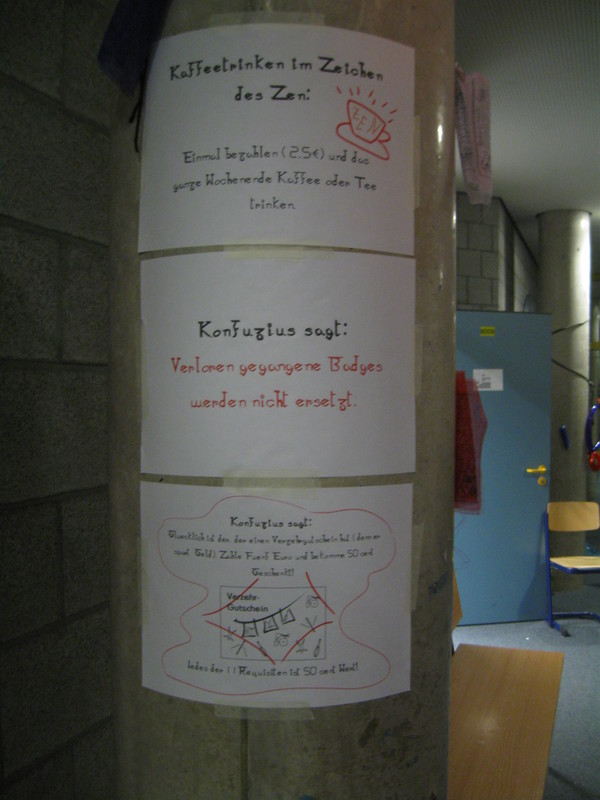 Kaffeetrinken im Zeichen
des Zen:
ZEN
Einmal bezahlen (2.5€) und das
ganze Wochenende Kaffee oder Tee
trinken.
Konfuzius sagt:
Verloren gegangene Badges
werden nicht ersetzt.
Konfuzius sagt:
Gluecklich ist der, der einen Verzehrgutschein hat (denn er
spart Geld). Zahle Fuenf Euro und bekomme 50 cent
Geschenkt!
Verzehr-
Gutschein
Jedes der 11 Requisiten ist 50 cent Wert!